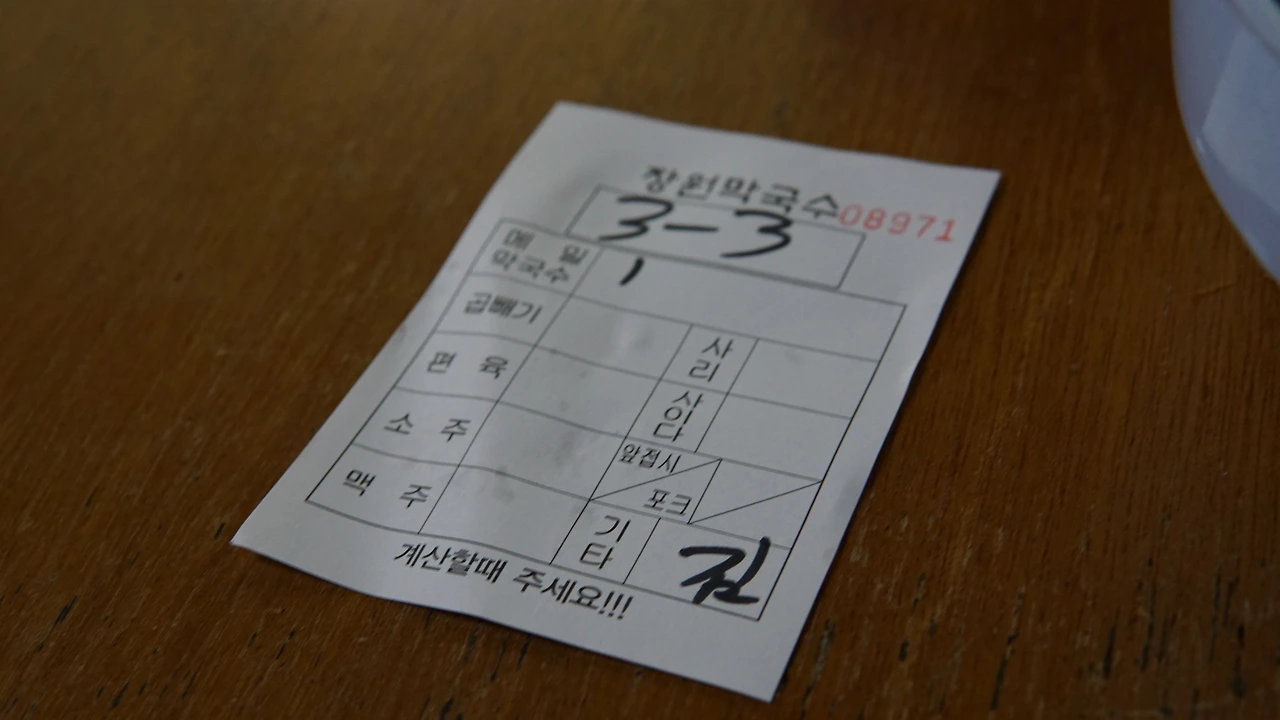 장원막국수 08971
3-3
메 밀
막국수 1
곱빼기 사리
편 육 사이다
소 주 앞접시 포크
맥 주 기타
계산할때 주세요!!!